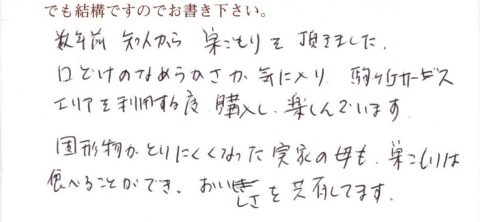 でも結構ですのでお書き下さい。
数年前 知人から 巣ごもりを 頂きました。
口どけのなめらかさが 気に入り 駒ヶ岳サービス
エリアを利用する度 購入し、楽しんでいます。
固形物がとりにくくなった実家の母も、巣ごもりは
食べることができ、おいしさを共有してます。